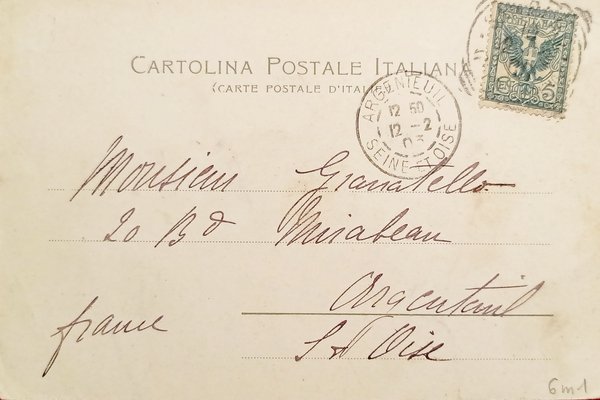 CARTOLINA POSTALE ITALIANA
(CARTE POSTALE D'ITALIE
ARGENTEUIL
12 50
12 - 2
05
SEINE ET OISE
5
Monsieur Granatello
20 Bd Mirabeau
Argenteuil
france
S & Oise
6m1